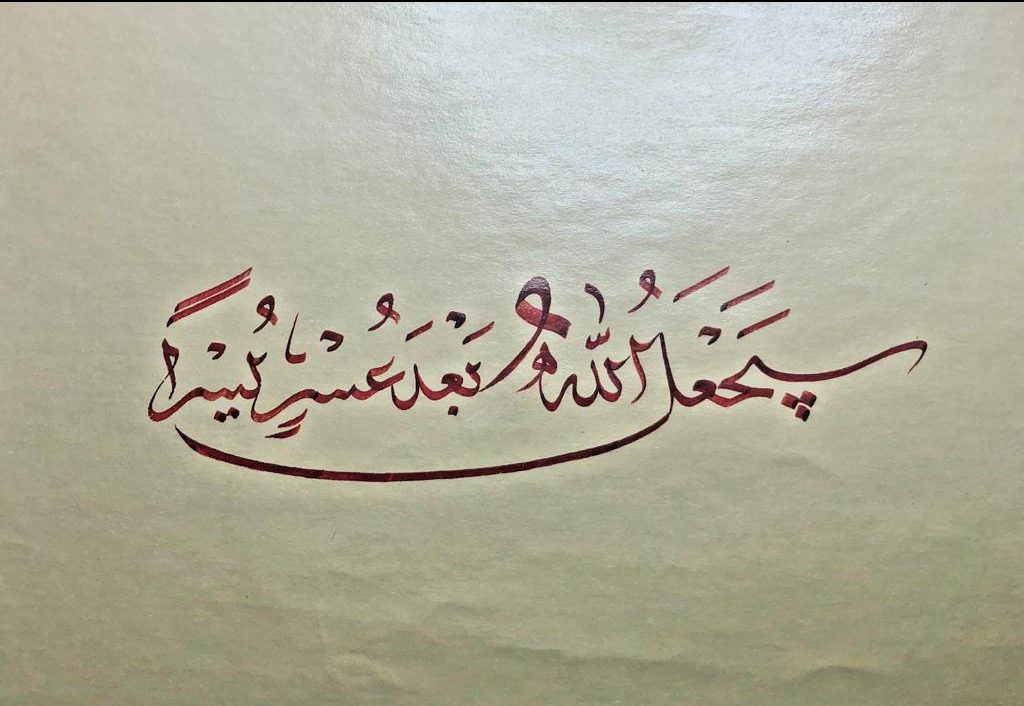 سَيَجْعَلُ اللّٰهُ بَعْدَ عُسْرٍ يُسْرًا